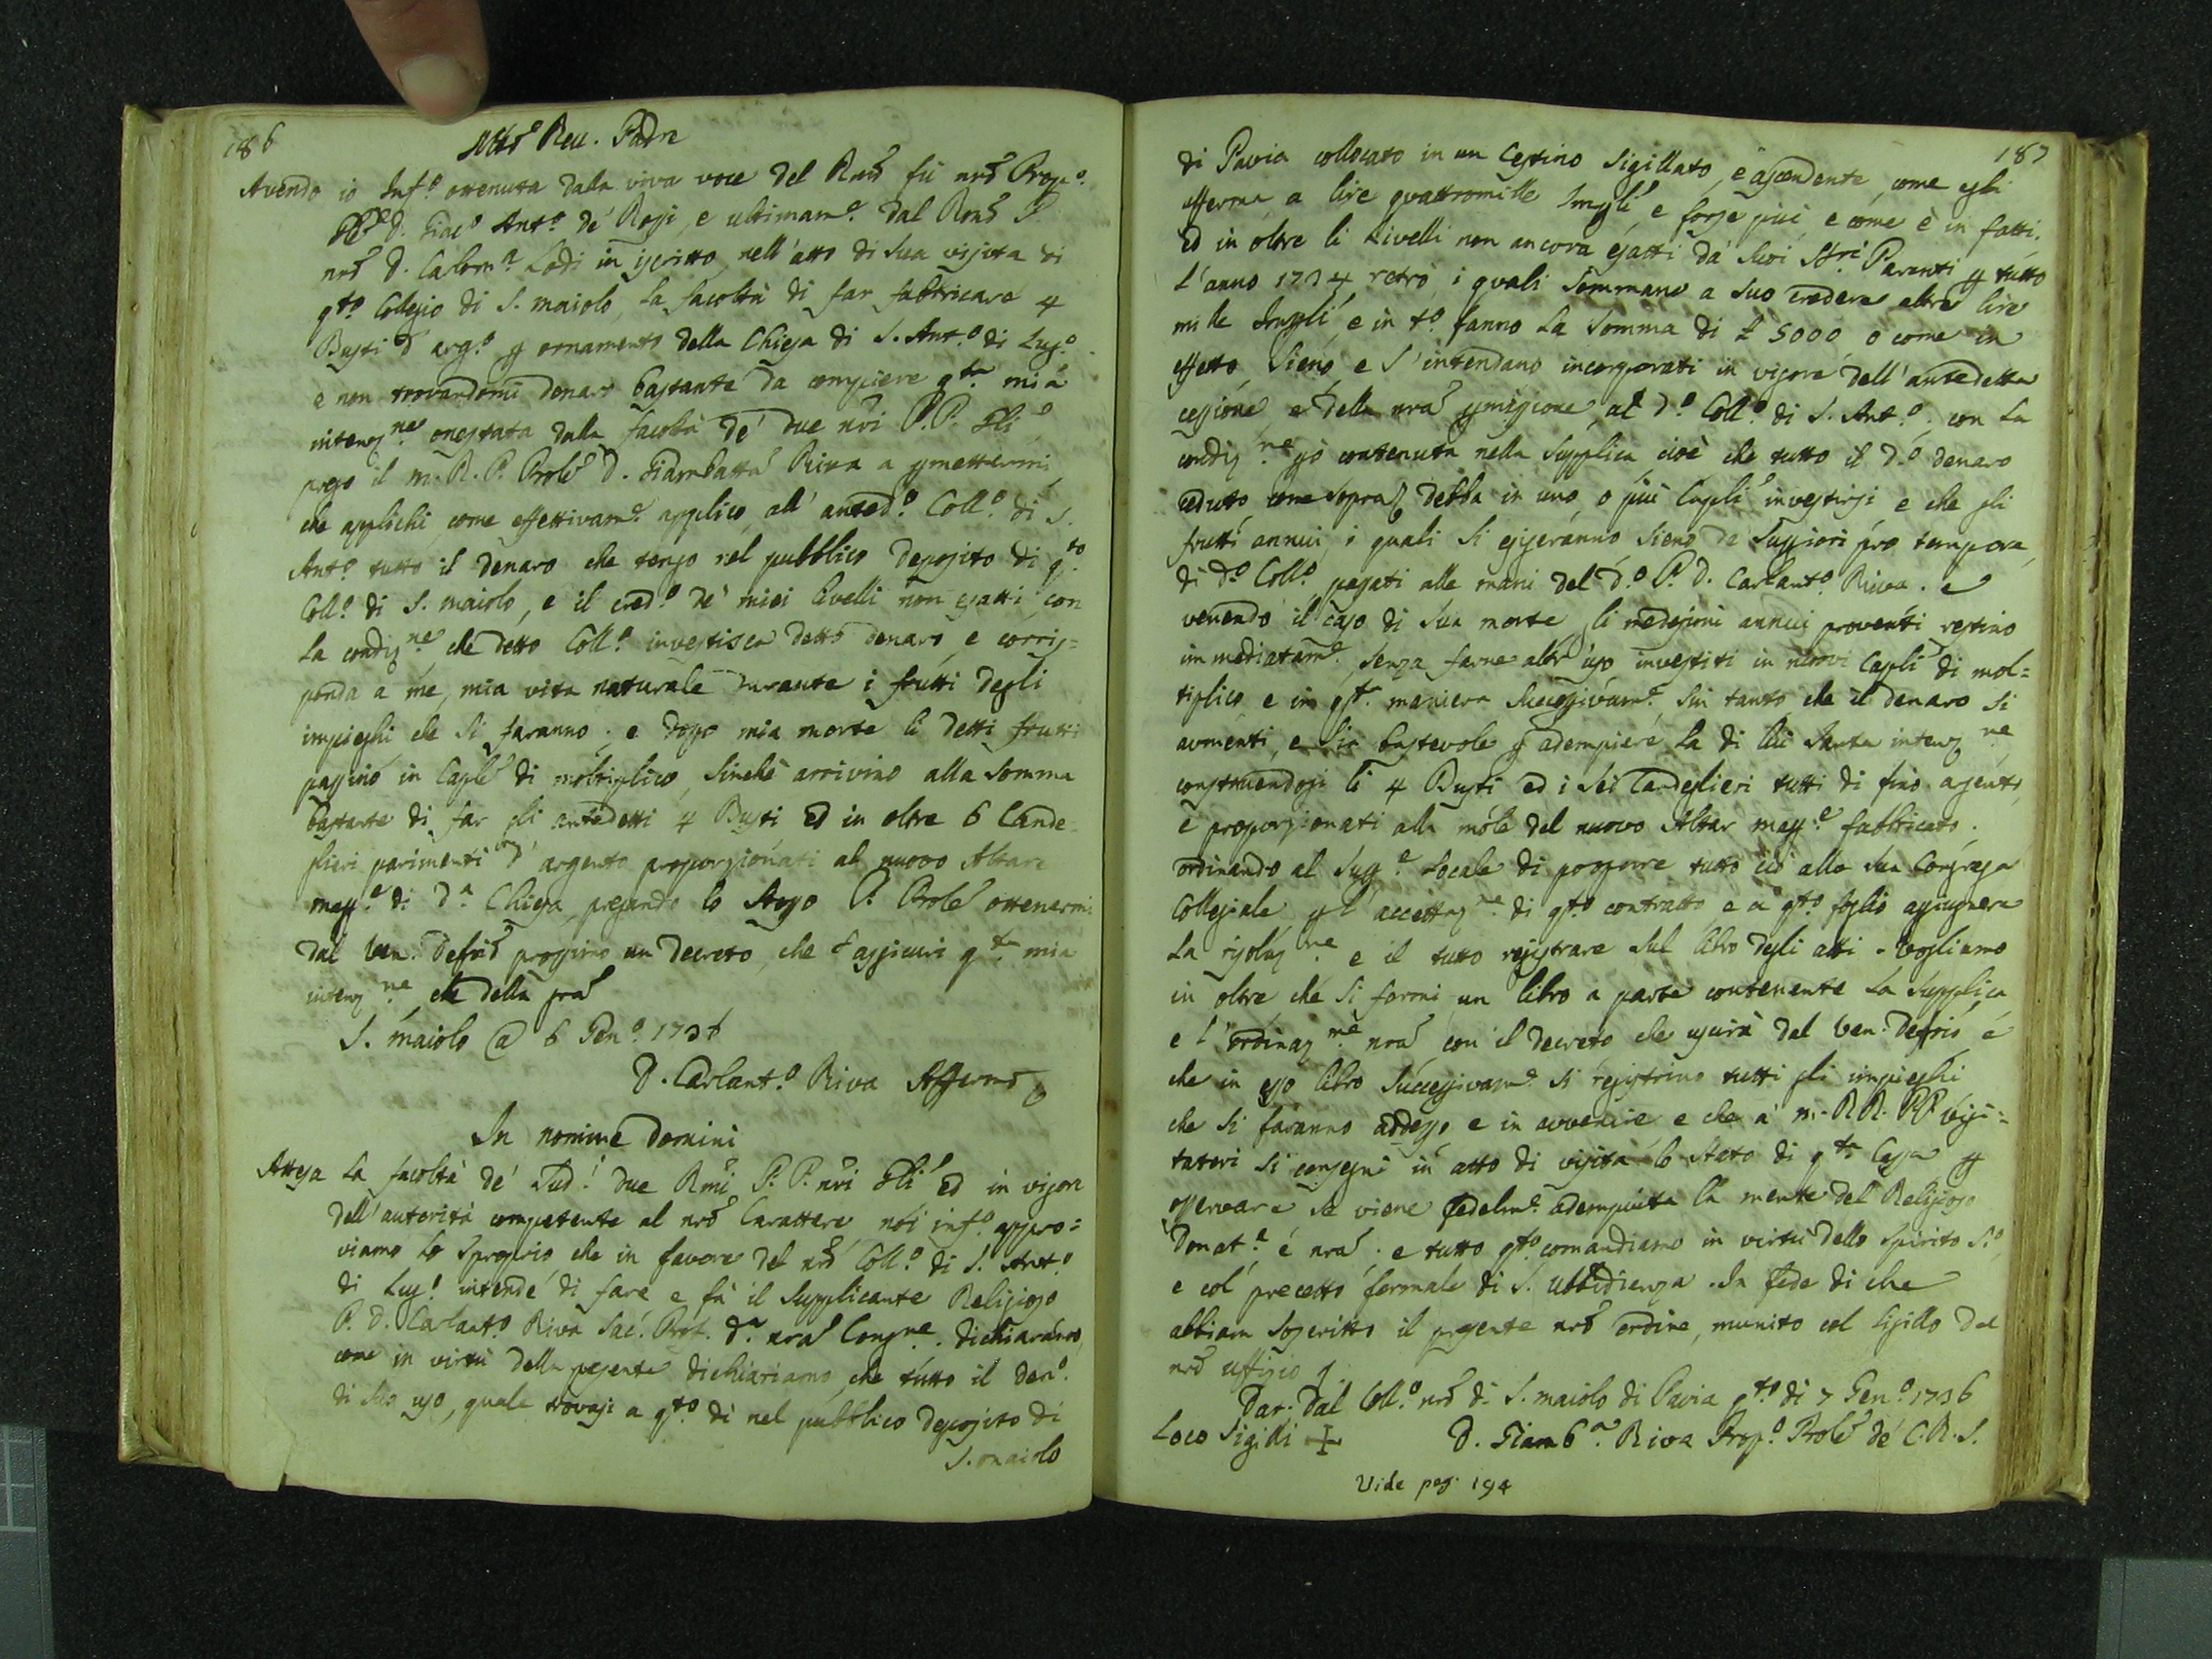 186
Mto Reu. Padre
Avendo io Inf.o ottenuta dalla viva voce del Rmo fù nro Prep.o
Gle D. Giac.o Ant.o de' Rossi, e ultimam.e dal Rmo P.
nro D. Carlom.a Lodi in iscritto, nell'atto di sua visita di
q.to Collegio di S. maiolo, la facoltà di far fabbricare 4
Busti d'arg.o p ornamento della Chiesa di S. Ant.o di Lug.o
e non trovandomi denaro bastante da compiere q.ta mia
intenz.ne onestata dalla facoltà de' due nri P.P. Gli
prego il m. R. P. Prole D. Giambatta Riva a pmettermi,
che applichi, come effettivam.e applico, all' anted.o Coll.o di S.
Ant.o tutto il denaro che tengo nel pubblico deposito di q.to
Coll.o di S. maiolo, e il cred.o de' miei livelli non esatti con
la condiz.ne che detto Coll.o investisca detto denaro, e corris=
ponda a me, mia vita naturale durante i frutti degli
impieghi che si faranno. e dopo mia morte li detti frutti
passino in Caple di moltiplico, sinchè arrivino alla somma
bastante di far gli antedetti 4 Busti ed in oltre 6 Cande=
glieri parimenti d'argento proporzionati al nuovo Altare
magg.e di d.a Chiesa, pregando lo stesso P. Prole ottenermi
dal Ven. Defrio prossimo un decreto, che assicuri q.ta mia
intenz.ne che della gra
S. maiolo @ 6 Gen.o 1736
D. Carlant.o Riva Affermo
In nomine Domini
Attesa la facoltà de' sud.i due Rmi P.P. nri Gli ed in vigore
dell'autorità competente al nro Carattere, noi inf.o appro=
viamo lo sproprio, che in favore del nro Coll.o di S. Ant.o
di Lug.o intende di fare e fà il supplicante Religioso
P. D. Carlant.o Riva Sac. Prof. d.a nra Congne. dichiarando,
come in virtù della presente dichiariamo, che tutto il den.o
di suo uso, quale trovasi a q.to dì nel pubblico deposito di
S. maiolo
187
di Pavia collocato in un Cestino sigillato, e ascendente, come egli
afferma a lire quattromille Imp.li e forse più, e come è in fatti.
Ed in oltre li Livelli non ancora esatti da' suoi Sri Parenti p tutto
l'anno 1734 retrò, i quali sommano a suo credere altre lire
mille Imp.li, e in t.o fanno la somma di £ 5000 o come in
effetto sieno, e s'intendano incorporati in vigore dell'antedetta
cessione, e della nra pmissione, al d.o Coll.o di S. Ant.o, con la
condiz.ne pò contenuta nella supplica, cioè che tutto il d.o denaro
ceduto come sopra, debba in uno, o più Capli investirsi e che gli
frutti annui, i quali si esigeranno sieno da' Suppiori pro tempore
di d.o Coll.o pagati alle mani del d.o P. D. Carlant.o Riva. e
venendo il caso di sua morte, li medesimi annui proventi restino
immediatam.e, senza farne altr'uso investiti in nuovi Capli di mol=
tiplico e in q.ta maniera successivam.e sin tanto che il denaro si
aumenti, e sia bastevole p adempiere la di lui santa intenz.ne
construendosi li 4 Busti ed i sei Candeglieri tutti di fino argento
e proporzionati alla mole del nuovo Altar magg.e fabbricato.
ordinando al Sup.e Locale di proporre tutto ciò alla sua Congrega
Collegiale p l'accettaz.ne di q.to contratto, e a q.to foglio aggiugnere
la risoluz.ne e il tutto registrare sul libro degli atti. Vogliamo
in oltre che si formi un libro a parte contenente la supplica
e l'ordinaz.ne nra con il decreto che uscirà dal Ven. Defrio, e
che in esso libro successivam.e si registrino tutti gli impieghi
che si faranno addesso e in avvenire e che a' m. RR. PP. visi=
tatori si consegni in atto di visita lo stato di q.ta Cassa p
osservare se viene fedelm.e adempiuta la mente del Religioso
Donat.e e nra. e tutto q.to comandiamo in virtù dello Spirito S.o,
e col precetto formale di S. ubbidienza. In fede di che
abbiam soscritto il presente nro ordine, munito col sigillo del
nro uffizio.
Dat. dal Coll.o nro di S. maiolo di Pavia q.to dì 7 Gen.o 1736
Loco Sigilli ✠ D. Giamb.a Riva Prep.o Prole de' C.R.S.
Vide pag. 194